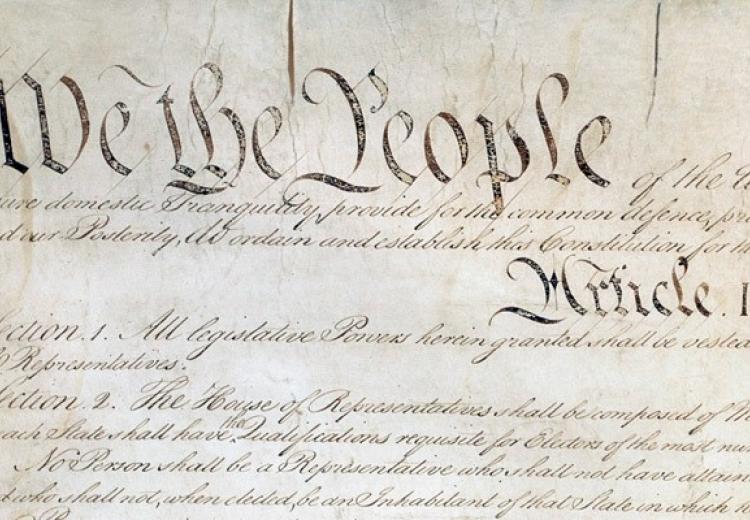 We the People of the
ure domestic Tranquility, provide for the common defence, pr
d our Posterity, do ordain and establish this Constitution for th
Article. I
ection. 1. All legislative Powers herein granted shall be vested
Representatives.
ection. 2. The House of Representatives shall be composed of
the
ach State shall have Qualifications requisite for Electors of the most nu
No Person shall be a Representative who shall not have attain
who shall not, when elected, be an Inhabitant of that State in which